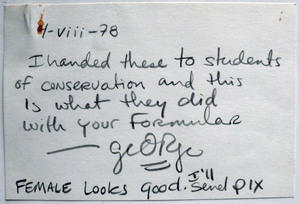 1-viii-78
I handed these to students
of conservation and this
Is what they did
with your Formular
— george
FEMALE Looks Good. I'll Send PIX